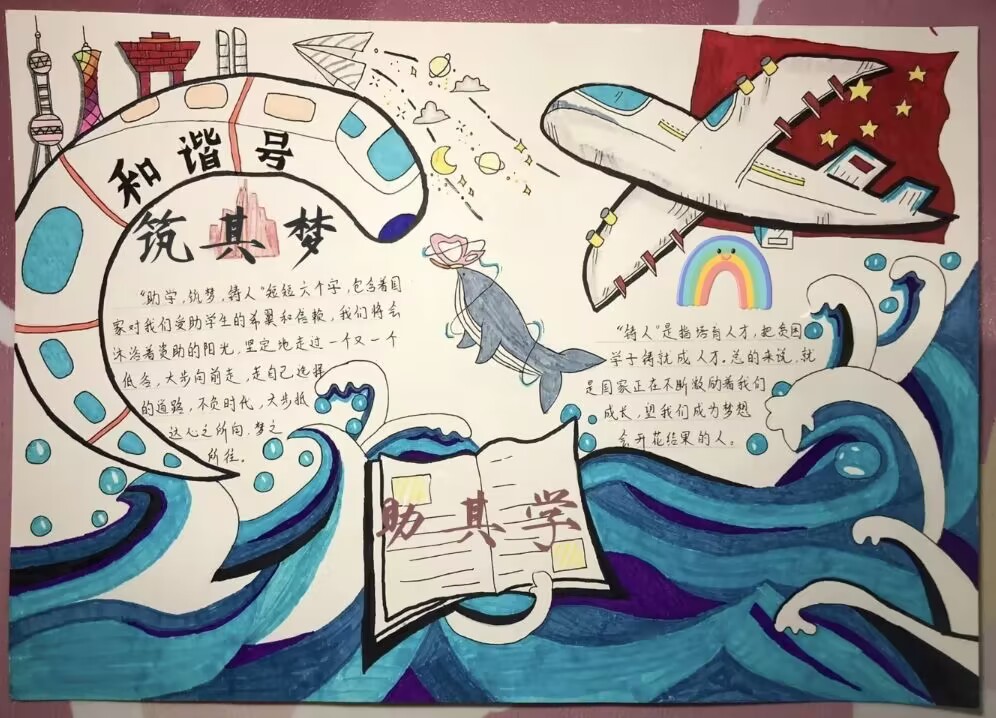 和谐号
筑其梦
"助学,筑梦,铸人"短短六个字,包含着国
家对我们受助学生的希翼和信赖,我们将会
沐浴着资助的阳光,坚定地走过一个又一个
低谷,大步向前走,走自己选择
的道路,不负时代,大步抵
达心之所向,梦之
所往。
"铸人"是指培育人才,把贫困
学子铸就成人才。总的来说,就
是国家正在不断激励着我们
成长,望我们成为梦想
会开花结果的人。
助其学